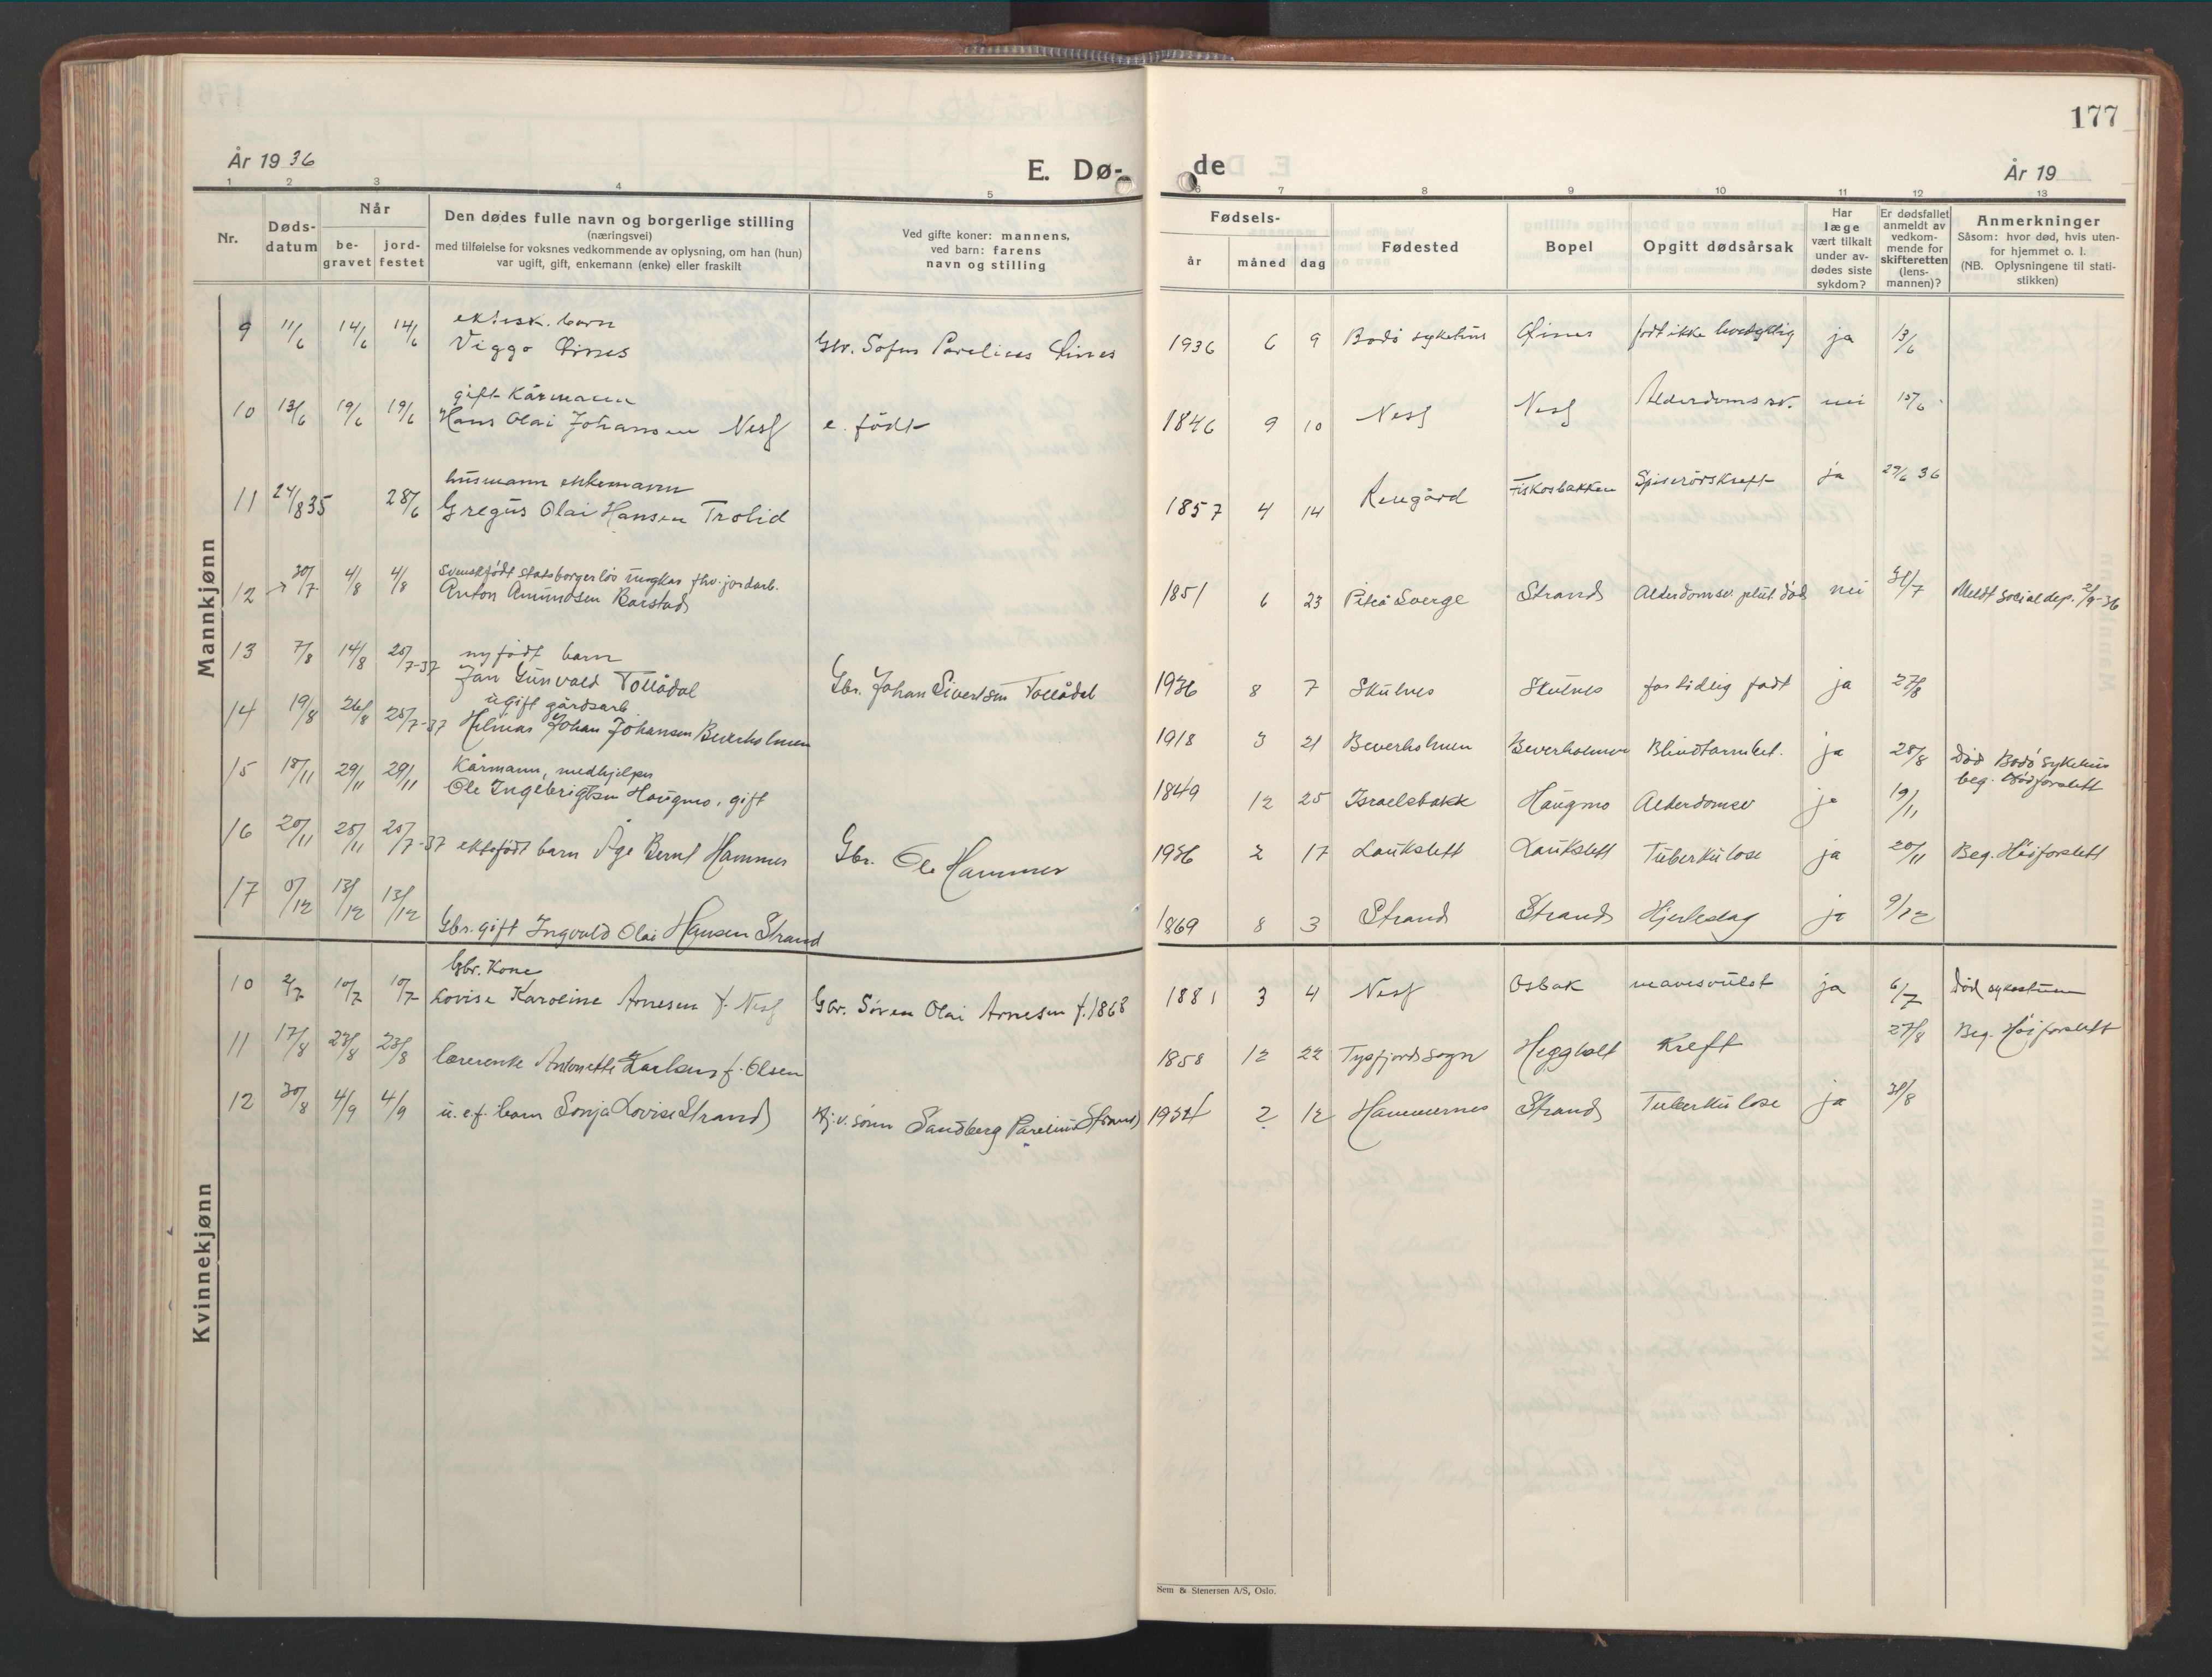 177
År 1936
E. Dø-
de
År 19
1 2 3 4 5 6 7 8 9 10 11 12 13
Nr.
Døds-
datum
Når
be-
gravet
jord-
festet
Den dødes fulle navn og borgerlige stilling
(næringsvei)
med tilføielse for voksnes vedkommende av oplysning, om han (hun)
var ugift, gift, enkemann (enke) eller fraskilt
Ved gifte koner: mannens,
ved barn: farens
navn og stilling
Fødsels-
år
måned
dag
Fødested
Bopel
Opgitt dødsårsak
Har
læge
vært tilkalt
under av-
dødes siste
sykdom?
Er dødsfallet
anmeldt av
vedkom-
mende for
skifteretten
(lens-
mannen)?
Anmerkninger
Såsom: hvor død, hvis uten-
for hjemmet o. l.
(NB. Oplysningene til stati-
stikken)
Mannkjønn
ektesk. barn
9 11/6 14/6 14/6 Viggo Lines Gbr. Sofus Parelius Lines 1936 6 9 Bodø sykehus Lines født ikke ja 13/6
gift Kårmann
10 13/6 19/6 19/6 Hans Olai Johansen Nesf e. født 1846 9 10 Nesf Nesf Alderdomssv. nei 15/6
husmann enkemann
11 24/8 35 28/6 Gregus Olai Hansen Trolid 1857 4 14 Fiskosbakken Spiserørskreft ja 29/6 36
svenskfødt statsborgerløs ungkar fhv. jordarb.
12 30/7 4/8 4/8 Anton Amundsen Barstad 1851 6 23 Piteå Sverge Strand Alderdomsv. plut. død nei 31/7 Meldt Socialdep. 2/9-36
nyfødt barn
13 7/8 14/8 25/7-37 Jan Gunvald Tollådal Gbr. Johan Sivertsen Tollådal 1936 8 7 Skulnes Skulnes for tidlig født ja 27/8
ugift gårdsarb
14 19/8 26/8 25/7-37 Hilmar Johan Johansen Beverholmen 1918 3 21 Beverholmen Beverholmen Blindtarmbet. ja 28/8 Død Bodø Sykehus
beg.
Kårmann, medhjelper
15 18/11 29/11 29/11 Ole Ingebrigtsen Haugmo, gift 1849 12 25 Israelsbakk Haugmo Alderdomsv ja 19/11
16 20/11 25/11 25/7-37 ektefødt barn Åge Bernt Hammer Gbr. Ole Hammer 1936 2 17 Laukslett Laukslett Tuberkulose ja 20/11 Beg. Høiforslett
17 5/12 13/12 13/12 Gbr. gift Ingvald Olai Hansen Strand 1869 8 3 Strand Strand Hjerteslag ja 9/12
Kvinnekjønn
Gbr. Kone
10 2/7 10/7 10/7 Lovise Karoline Arnesen f. Nesf Gbr. Søren Olai Arnesen f. 1868 1881 3 4 Nesf Osbak mavesvulst ja 6/7 Død
11 17/8 23/8 23/8 lærerenke Antonette Karlsens f. Olsen 1858 12 22 Tysfjord sogn Heggholt Kreft 27/8 Beg. Høiforslett
12 30/8 4/9 4/9 u. e. f. barn Sonja Lovise Strand Kj. v. sønn Sandberg Parelius Strand 1934 2 12 Hammernes Strand Tuberkulose ja 31/8
Sem & Stenersen A/S, Oslo.